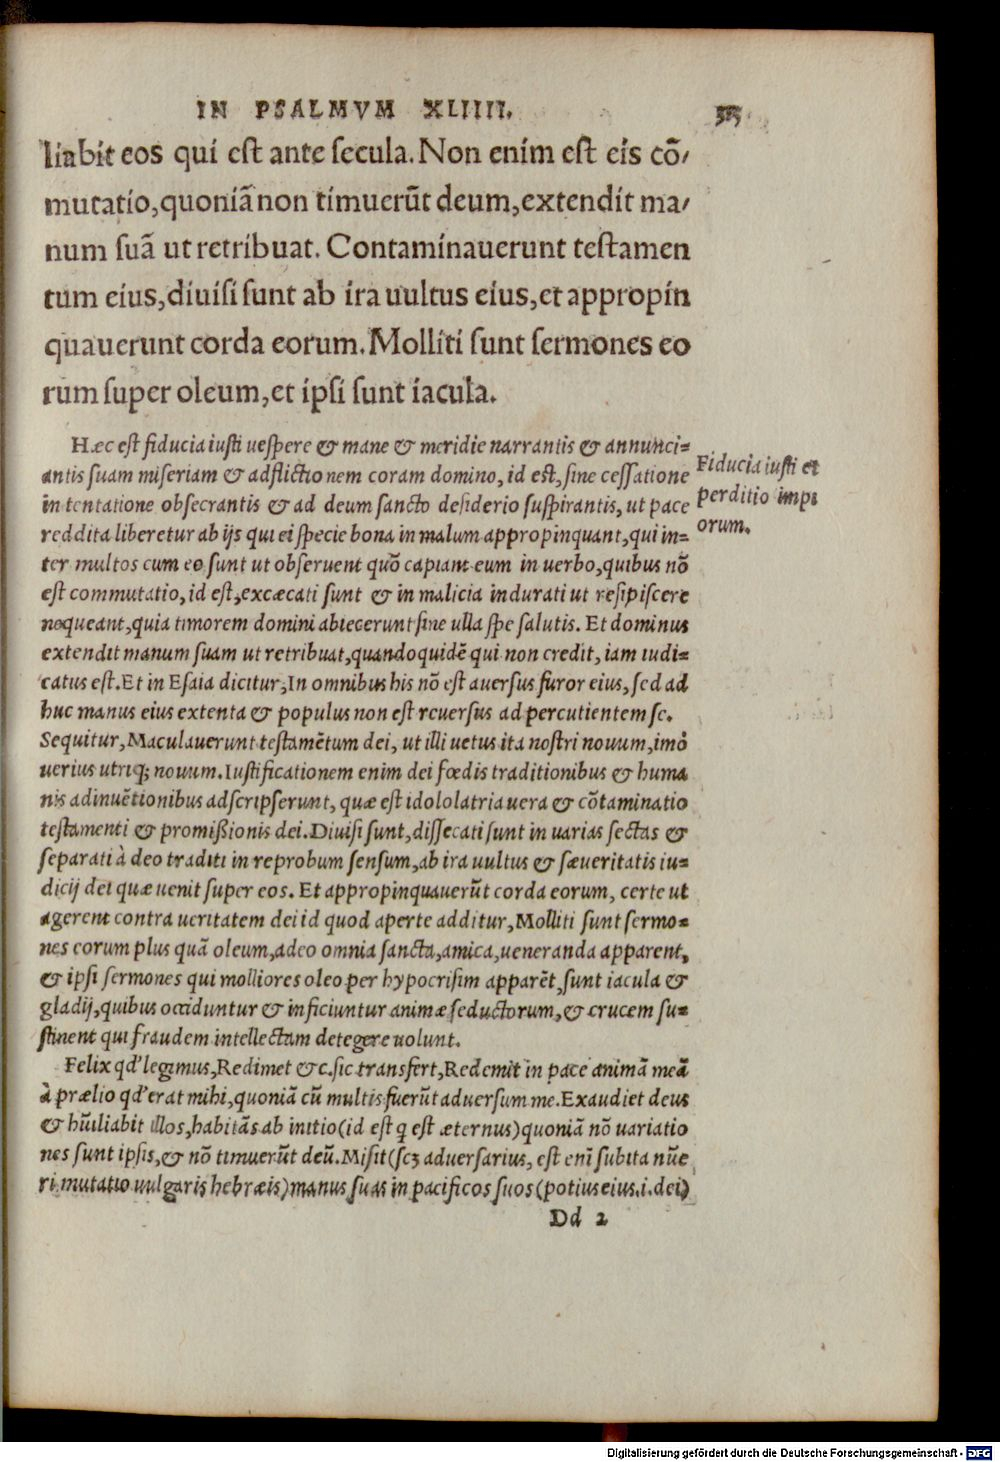 IN PSALMVM XLIIII.
liabit eos qui est ante secula. Non enim est eis cō/
mutatio, quoniā non timuerūt deum, extendit ma/
num suā ut retribuat. Contaminauerunt testamen
tum eius, diuisi sunt ab ira uultus eius, et appropin
quauerunt corda eorum. Molliti sunt sermones eo
rum super oleum, et ipsi sunt iacula.
Hæc est fiducia iusti uespere & mane & meridie narrantis & annunci=
antis suam miseriam & adflictionem coram domino, id est, sine cessatione
in tentatione obsecrantis & ad deum sancto desiderio suspirantis, ut pace
reddita liberetur ab ijs qui ei specie bona in malum appropinquant, qui in=
ter multos cum eo sunt ut obseruent quō capiant eum in uerbo, quibus nō
est commutatio, id est, excæcati sunt & in malicia indurati ut resipiscere
nequeant, quia timorem domini abiecerunt sine ulla spe salutis. Et dominus
extendit manum suam ut retribuat, quandoquidē qui non credit, iam iudi=
catus est. Et in Esaia dicitur, In omnibus his nō est auersus furor eius, sed ad
huc manus eius extenta & populus non est reuersus ad percutientem se.
Sequitur, Maculauerunt testamētum dei, ut illi uetus ita nostri nouum, imò
uerius utriq; nouum. Iustificationem enim dei fœdis traditionibus & huma
nis adinuētionibus adscripserunt, quæ est idololatria uera & cōtaminatio
testamenti & promißionis dei. Diuisi sunt, dissecati sunt in uarias sectas &
separati à deo traditi in reprobum sensum, ab ira uultus & sæueritatis iu=
dicij dei quæ uenit super eos. Et appropinquauerūt corda eorum, certe ut
agerent contra ueritatem dei id quod aperte additur, Molliti sunt sermo=
nes eorum plus quā oleum, adeo omnia sancta, amica, ueneranda apparent,
& ipsi sermones qui molliores oleo per hypocrisim apparēt, sunt iacula &
gladij, quibus occiduntur & inficiuntur animæ seductorum, & crucem su=
stinent qui fraudem intellectam detegere uolunt.
Felix qd' legimus, Redimet &c. sic transfert, Redemit in pace animā meā
à prælio qd' erat mihi, quoniā cū multis fuerūt aduersum me. Exaudiet deus
& hūiliabit illos, habitās ab initio (id est q est æternus) quoniā nō uariatio
nes sunt ipsis, & nō timuerūt deū. Misit (scꝫ aduersarius, est enī subita nūe
ri mutatio uulgaris hebræis) manus suas in pacificos suos (potius eius .i. dei)
Dd 2
Fiducia iusti et
perditio impi
orum.
Digitalisierung gefördert durch die Deutsche Forschungsgemeinschaft - DFG